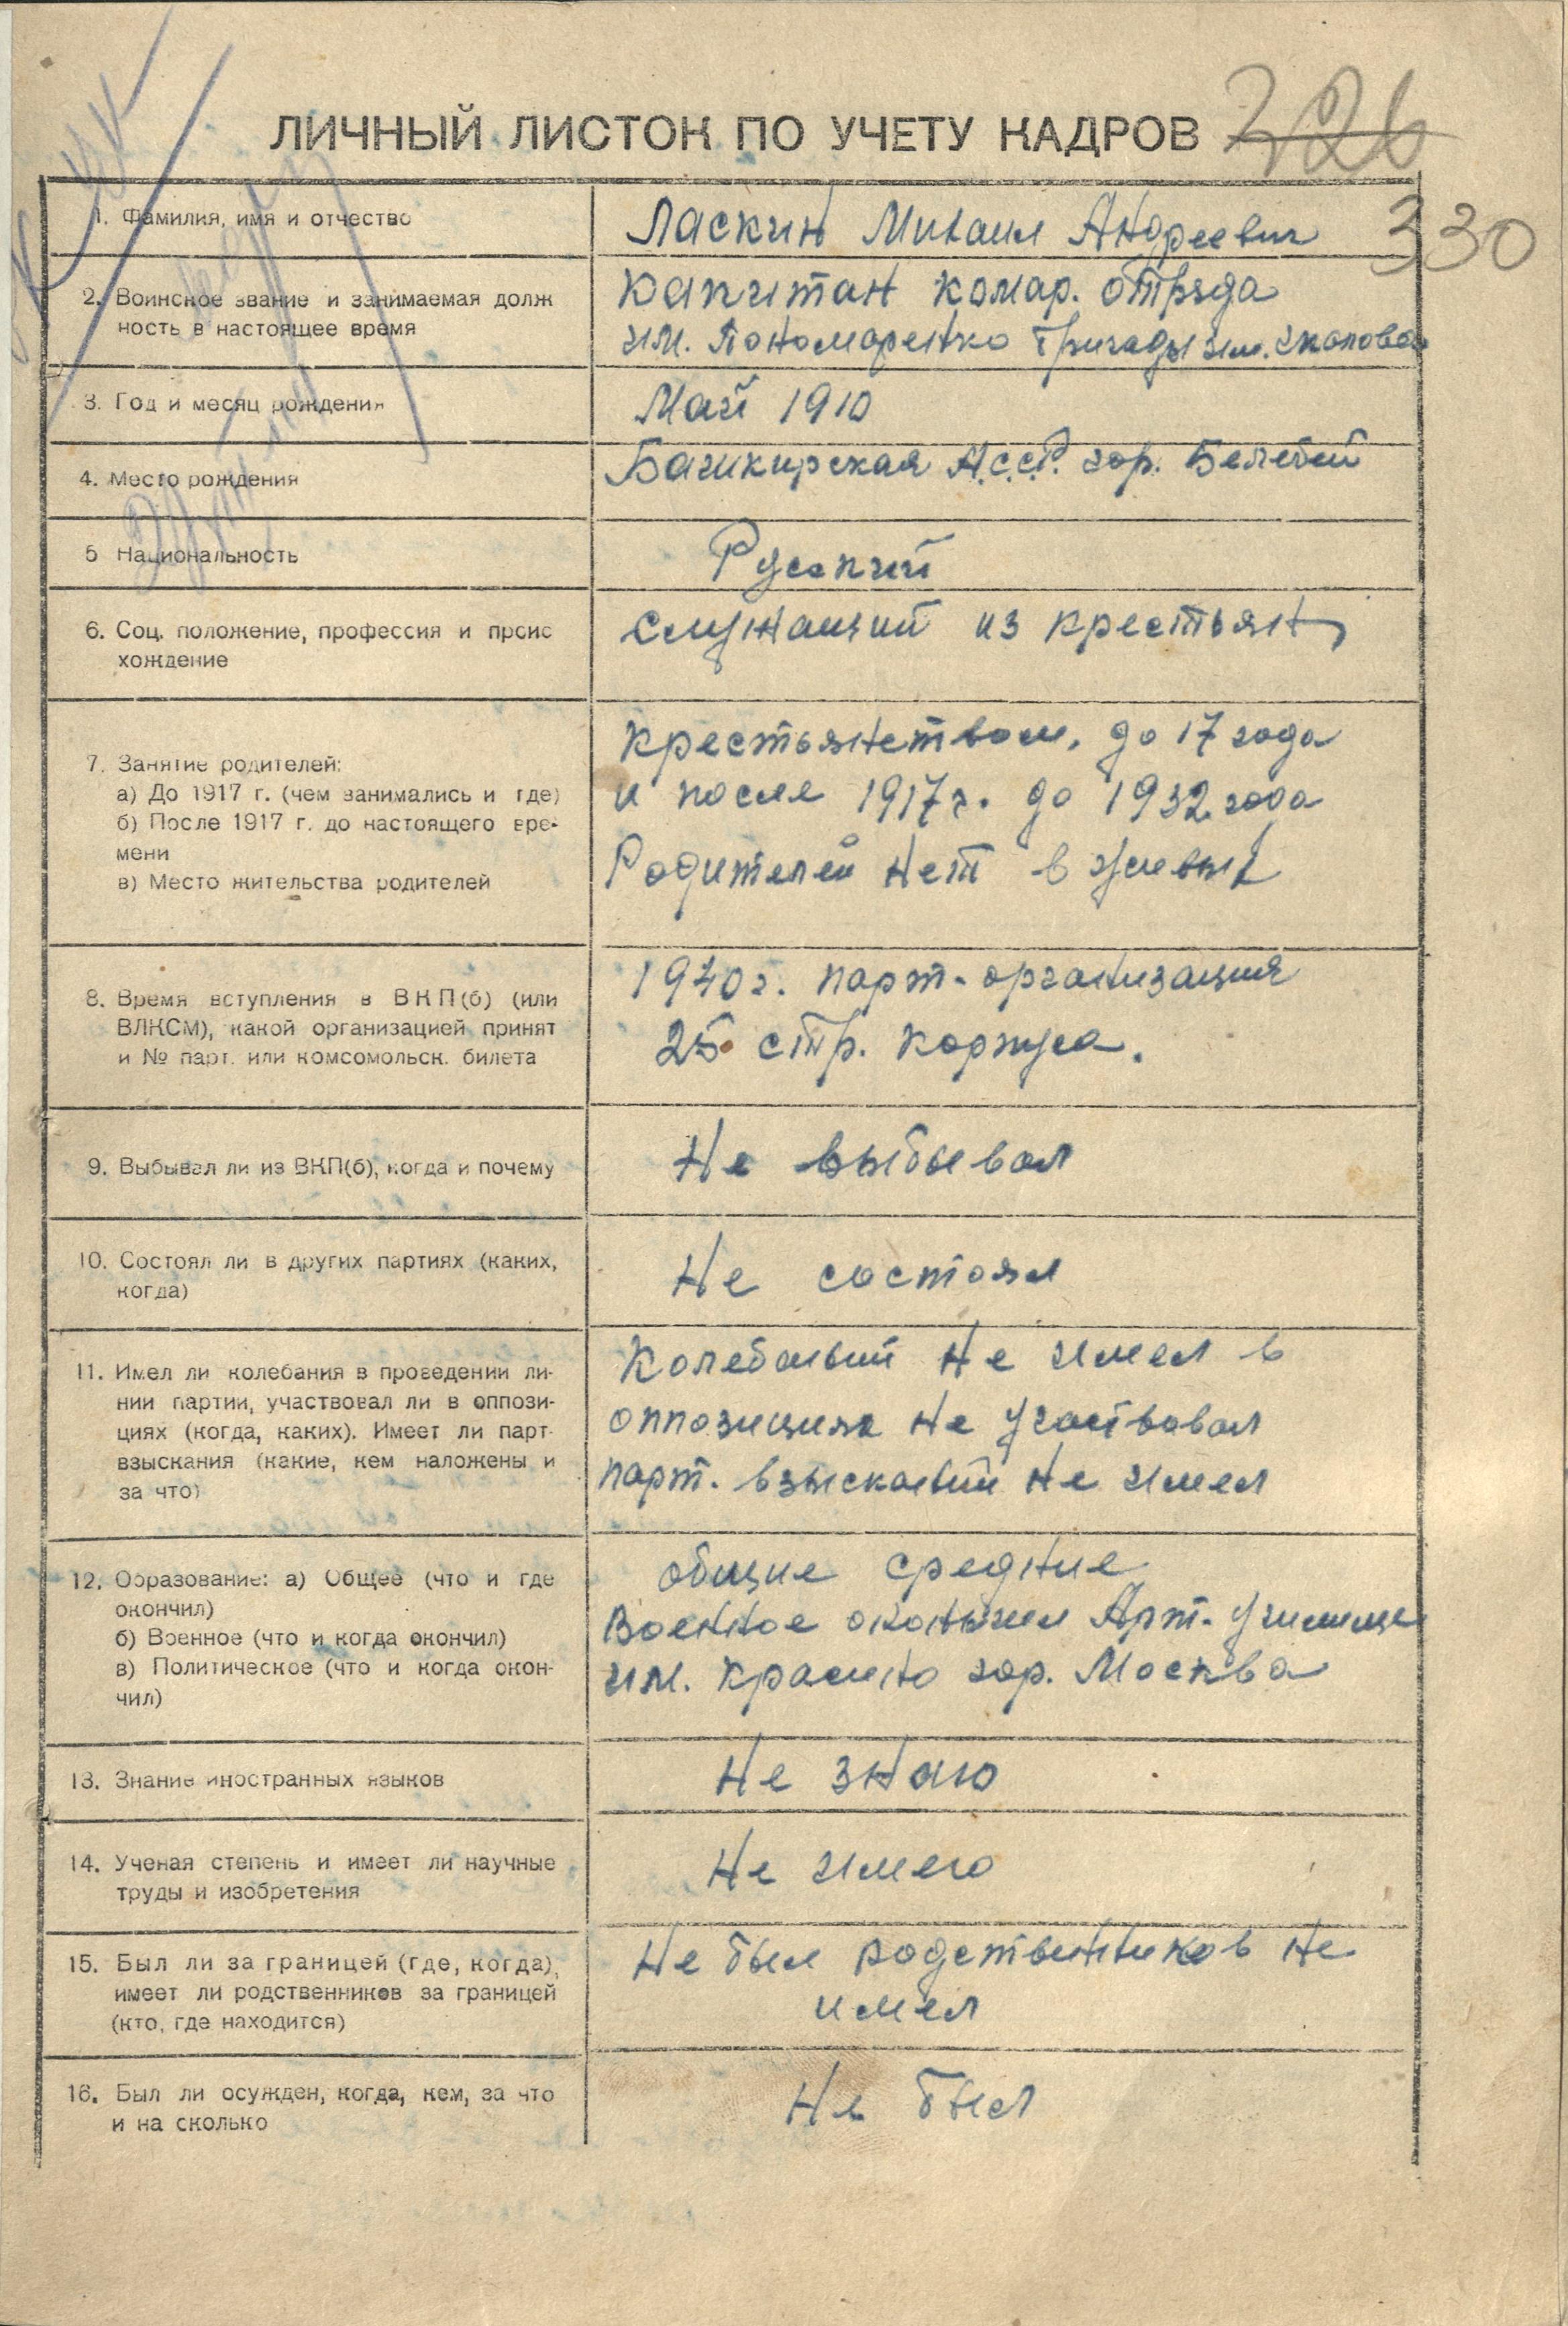 ЛИЧНЫЙ ЛИСТОК ПО УЧЕТУ КАДРОВ
326
330
1. Фамилия, имя и отчество
Ласкин Михаил Андреевич
2. Воинское звание и занимаемая долж
ность в настоящее время
Капитан комар. отряда
им. Пономаренко бригады им. Чкалова
3. Год и месяц рождения
Май 1910
4. Место рождения
Башкирская А.С.С.Р. гор. Белебей
5 Национальность
Русский
6. Соц. положение, профессия и проис
хождение
служащий из крестьян
7. Занятие родителей:
а) До 1917 г. (чем занимались и где)
б) После 1917 г. до настоящего вре-
мени
в) Место жительства родителей
крестьянством, до 17 года
и после 1917 г. до 1932 года
Родителей нет в живых
8. Время вступления в ВКП(б) (или
ВЛКСМ), какой организацией принят
и № парт. или комсомольск. билета
1940 г. парт-организация
25 стр. корпуса.
9. Выбывал ли из ВКП(б), когда и почему
Не выбывал
10. Состоял ли в других партиях (каких,
когда)
Не состоял
11. Имел ли колебания в проведении ли-
нии партии, участвовал ли в оппози-
циях (когда, каких). Имеет ли парт-
взыскания (какие, кем наложены и
за что)
Колебаний не имел в
оппозициях не участвовал
парт. взысканий не имел
12. Образование: а) Общее (что и где
окончил)
б) Военное (что и когда окончил)
в) Политическое (что и когда окон-
чил)
общие средние
Военное окончил Арт. училище
им. Красина гор. Москва
13. Знание иностранных языков
Не знаю
14. Ученая степень и имеет ли научные
труды и изобретения
Не имею
15. Был ли за границей (где, когда),
имеет ли родственников за границей
(кто, где находится)
Не был родственников не
имел
16. Был ли осужден, когда, кем, за что
и на сколько
Не был